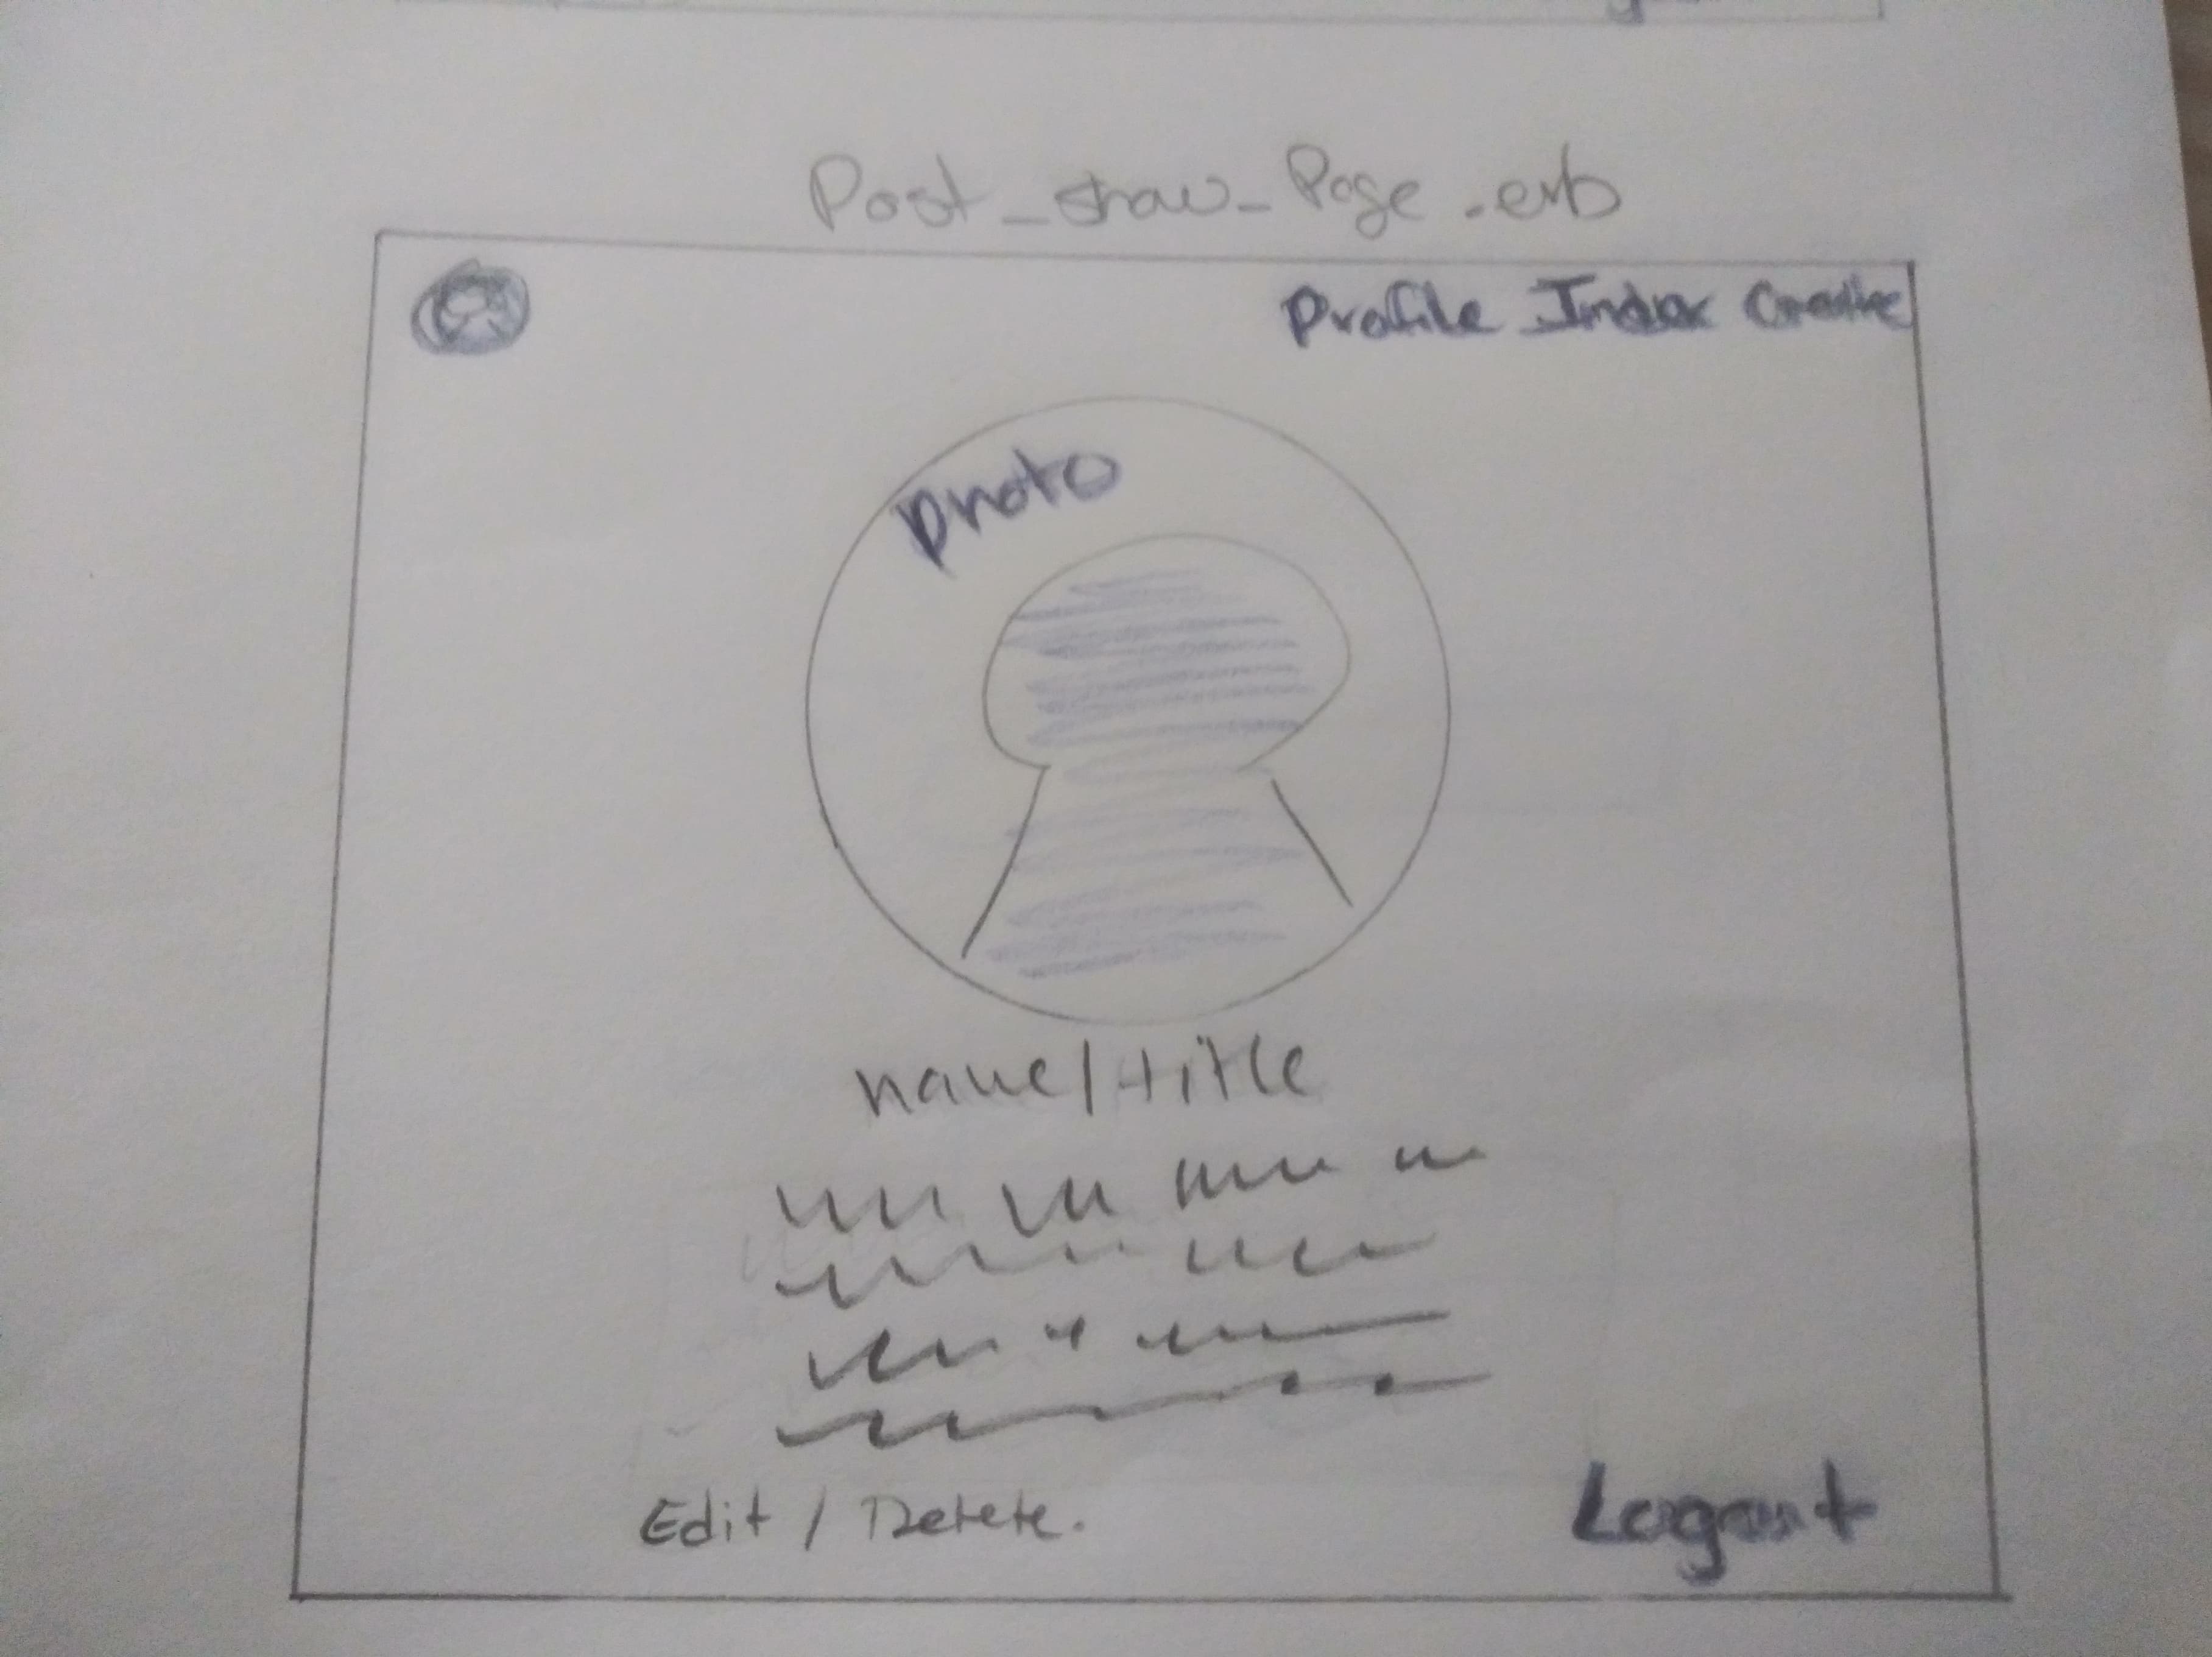 Post_show_Page.erb
Profile Index Create
photo
name/title
Edit / Delete.
Logout